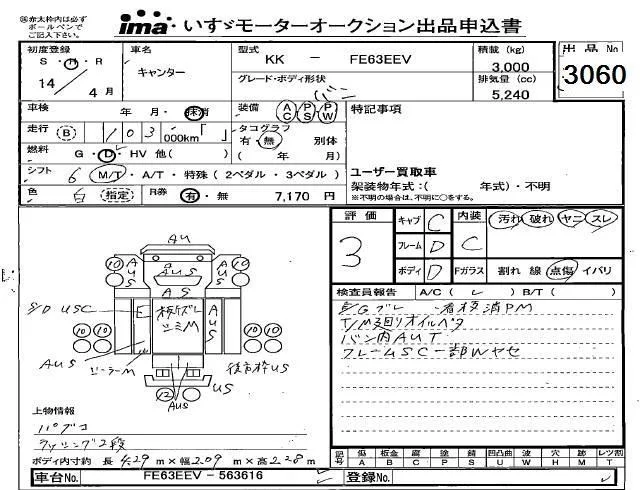 ㊟赤太枠内は必ず
ボールペンで
ご記入下さい。
ima いすゞモーターオークション出品申込書
初度登録
S・H・R
14年4月
車名
キャンター
型式
KK － FE63EEV
グレード・ボディ形状
バン
積載 (kg)
3,000
排気量 (cc)
5,240
出品 No
3060
車検 年 月・抹消
装備 AC PS PW
走行 (B) 103 000km「 」
タコグラフ
有・無 別体
( 年 月)
燃料 G・D・HV 他( )
シフト 6 M/T・A/T・特殊(2ペダル・3ペダル)
色 白 (指定) R券 有・無 7,170 円
特記事項
ユーザー買取車
架装物年式：( 年式)・不明
※不明の場合は、不明に○をする。
評価
3
キャブ C
フレーム D
ボディ D
内装 C
汚れ 破れ ヤニ スレ
Fガラス 割れ 線 点傷 イバリ
検査員報告 A/C ( レ ) B/T ( )
看板消PM
T/M廻りオイルベタ
バン内AUT
フレームSC一部Wヤセ
AU
10 AUS AUS AUS 10
AS
S/D USC E 板ズレ
シミM
10 10 10 10
AUS US
シーラーM
後方枠US
US
12 AUS
上物情報
パブコ
ラッシング2段
ボディ内寸約 長 4.29 m×幅 2.09 m×高 2.28 m
記号 傷 A 板金 B 腐 C 塗 P 錆 S 凹凸曲 U 波 W 穴 H 跡 M レツ割 T
車台No. FE63EEV － 563616
登録No.